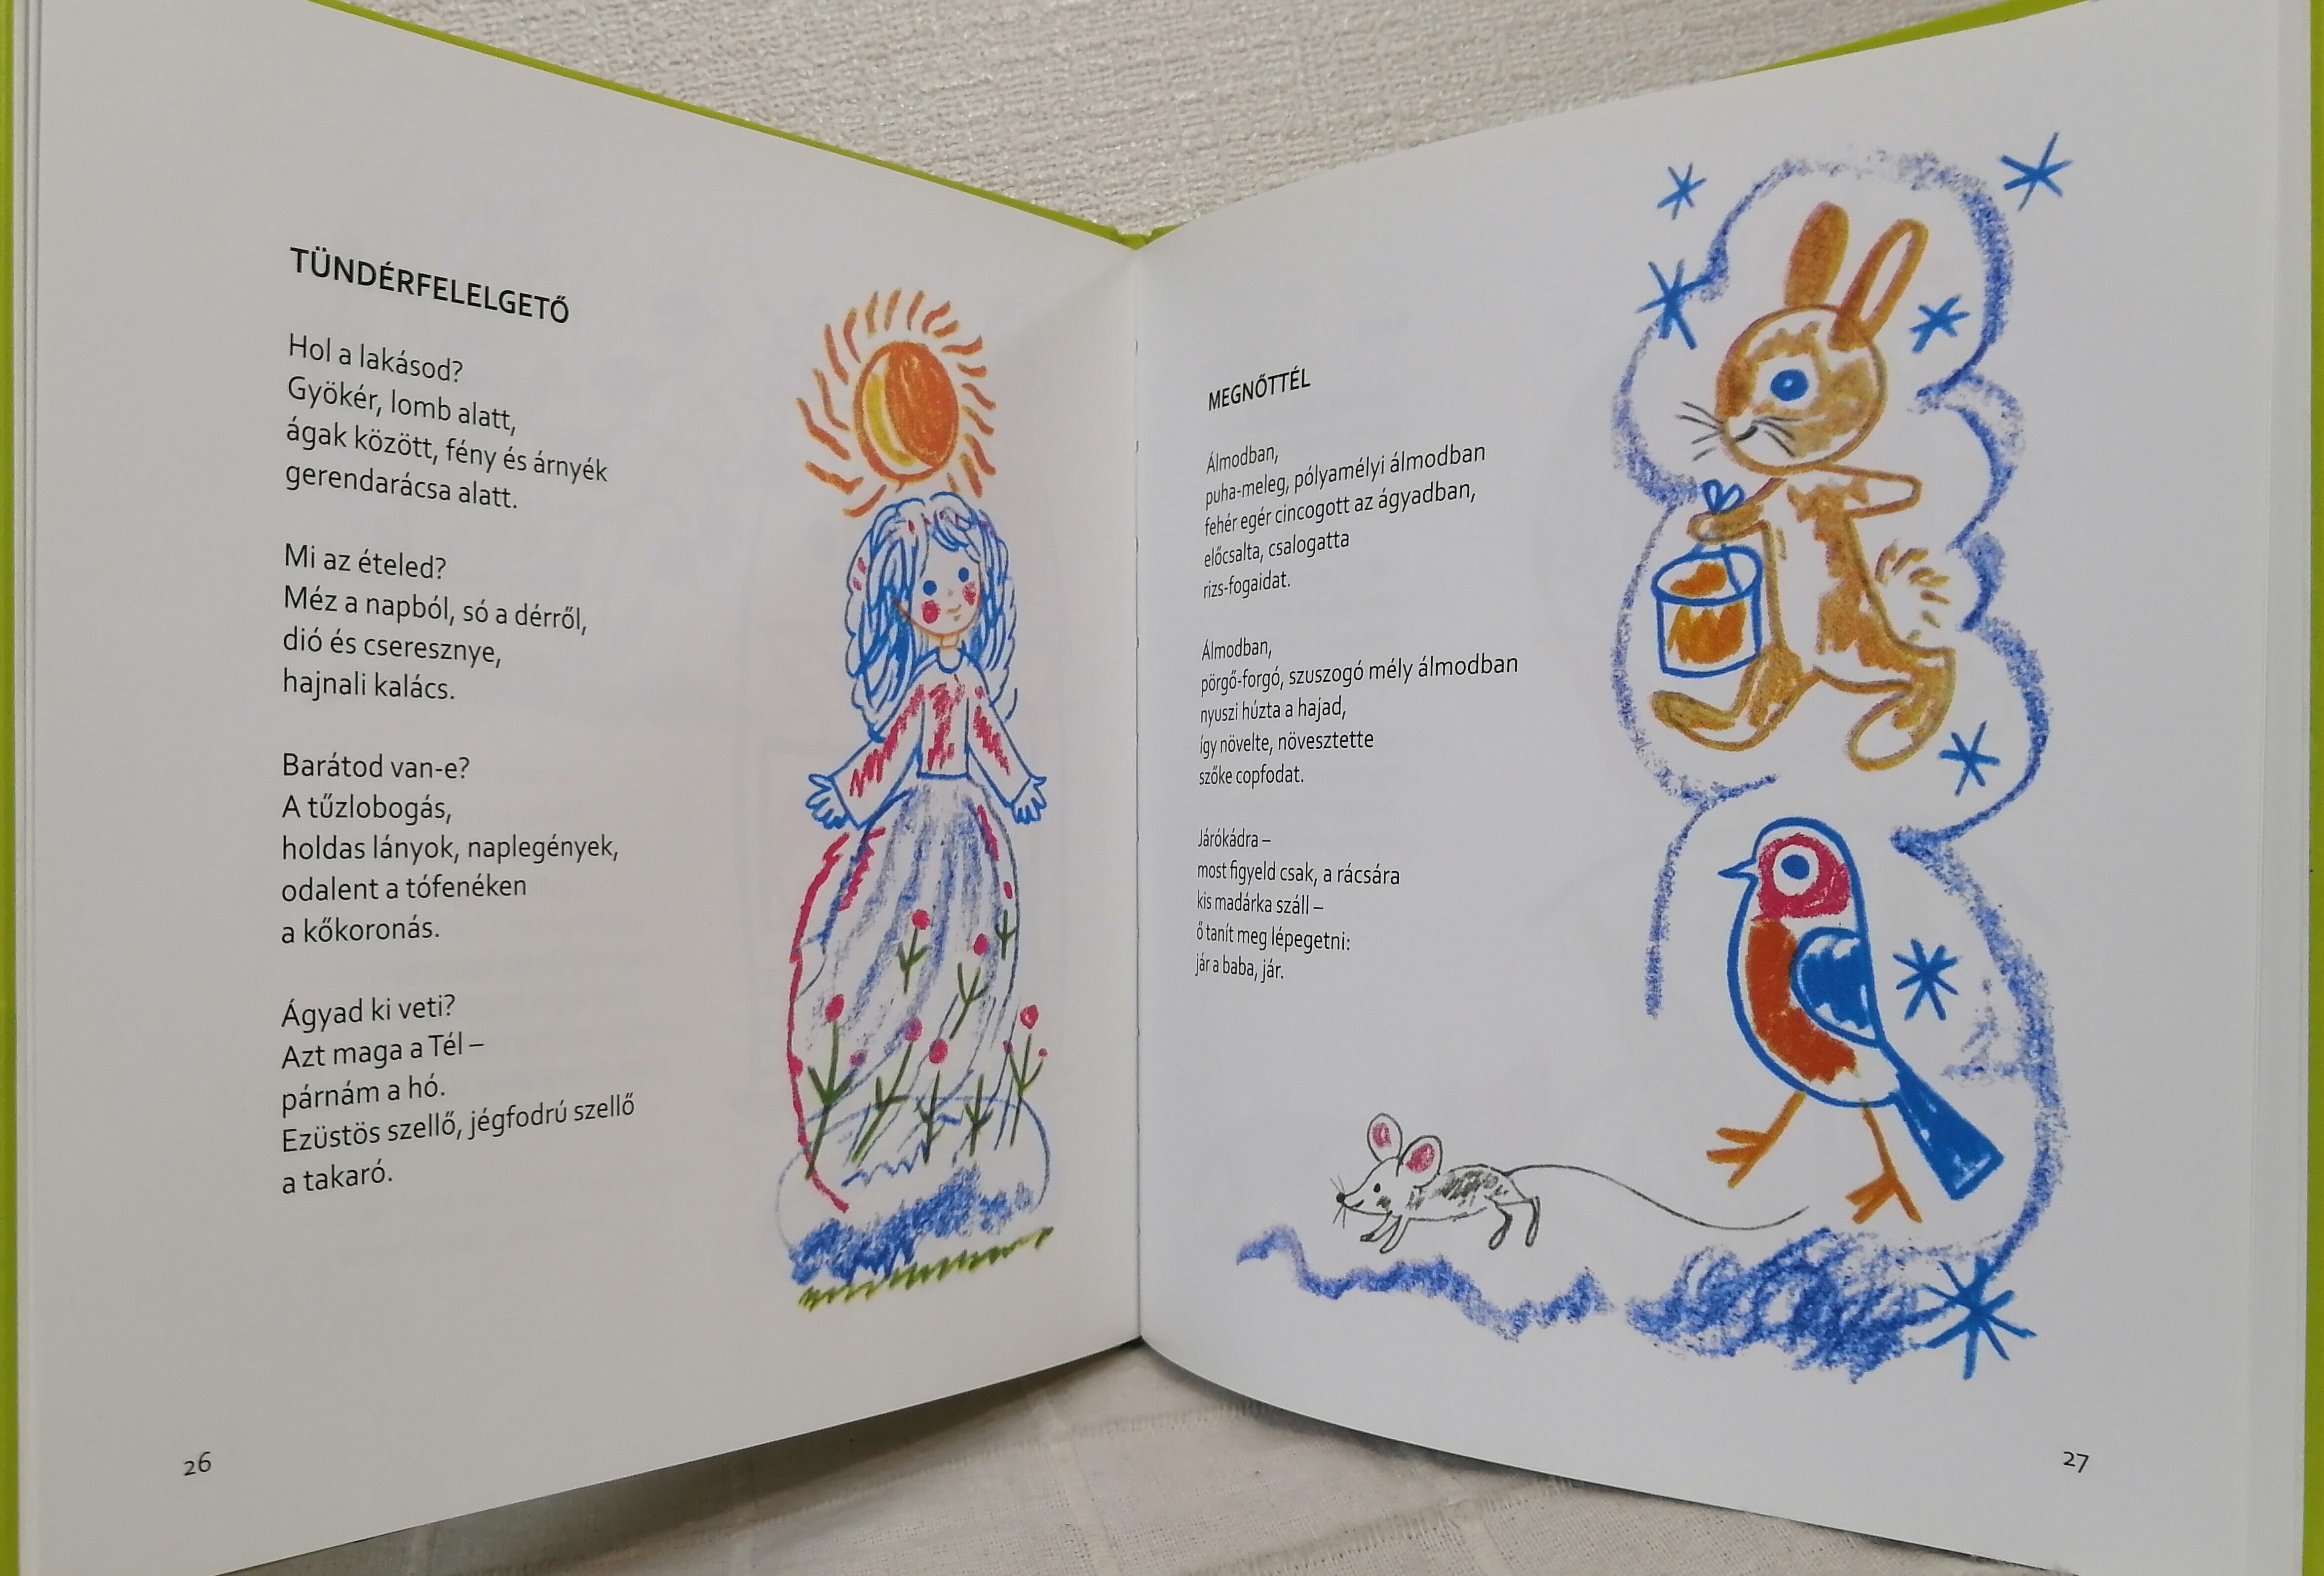 TÜNDÉRFELELGETŐ
Hol a lakásod?
Gyökér, lomb alatt,
ágak között, fény és árnyék
gerendarácsa alatt.
Mi az ételed?
Méz a napból, só a dérről,
dió és cseresznye,
hajnali kalács.
Barátod van-e?
A tűzlobogás,
holdas lányok, naplegények,
odalent a tófenéken
a kőkoronás.
Ágyad ki veti?
Azt maga a Tél –
párnám a hó.
Ezüstös szellő, jégfodrú szellő
a takaró.
26
MEGNŐTTÉL
Álmodban,
puha-meleg, pólyamélyi álmodban
fehér egér cincogott az ágyadban,
előcsalta, csalogatta
rizs-fogaidat.
Álmodban,
pörgő-forgó, szuszogó mély álmodban
nyuszi húzta a hajad,
így növelte, növesztette
szőke copfodat.
Járókádra –
most figyeld csak, a rácsára
kis madárka száll –
ő tanít meg lépegetni:
jár a baba, jár.
27